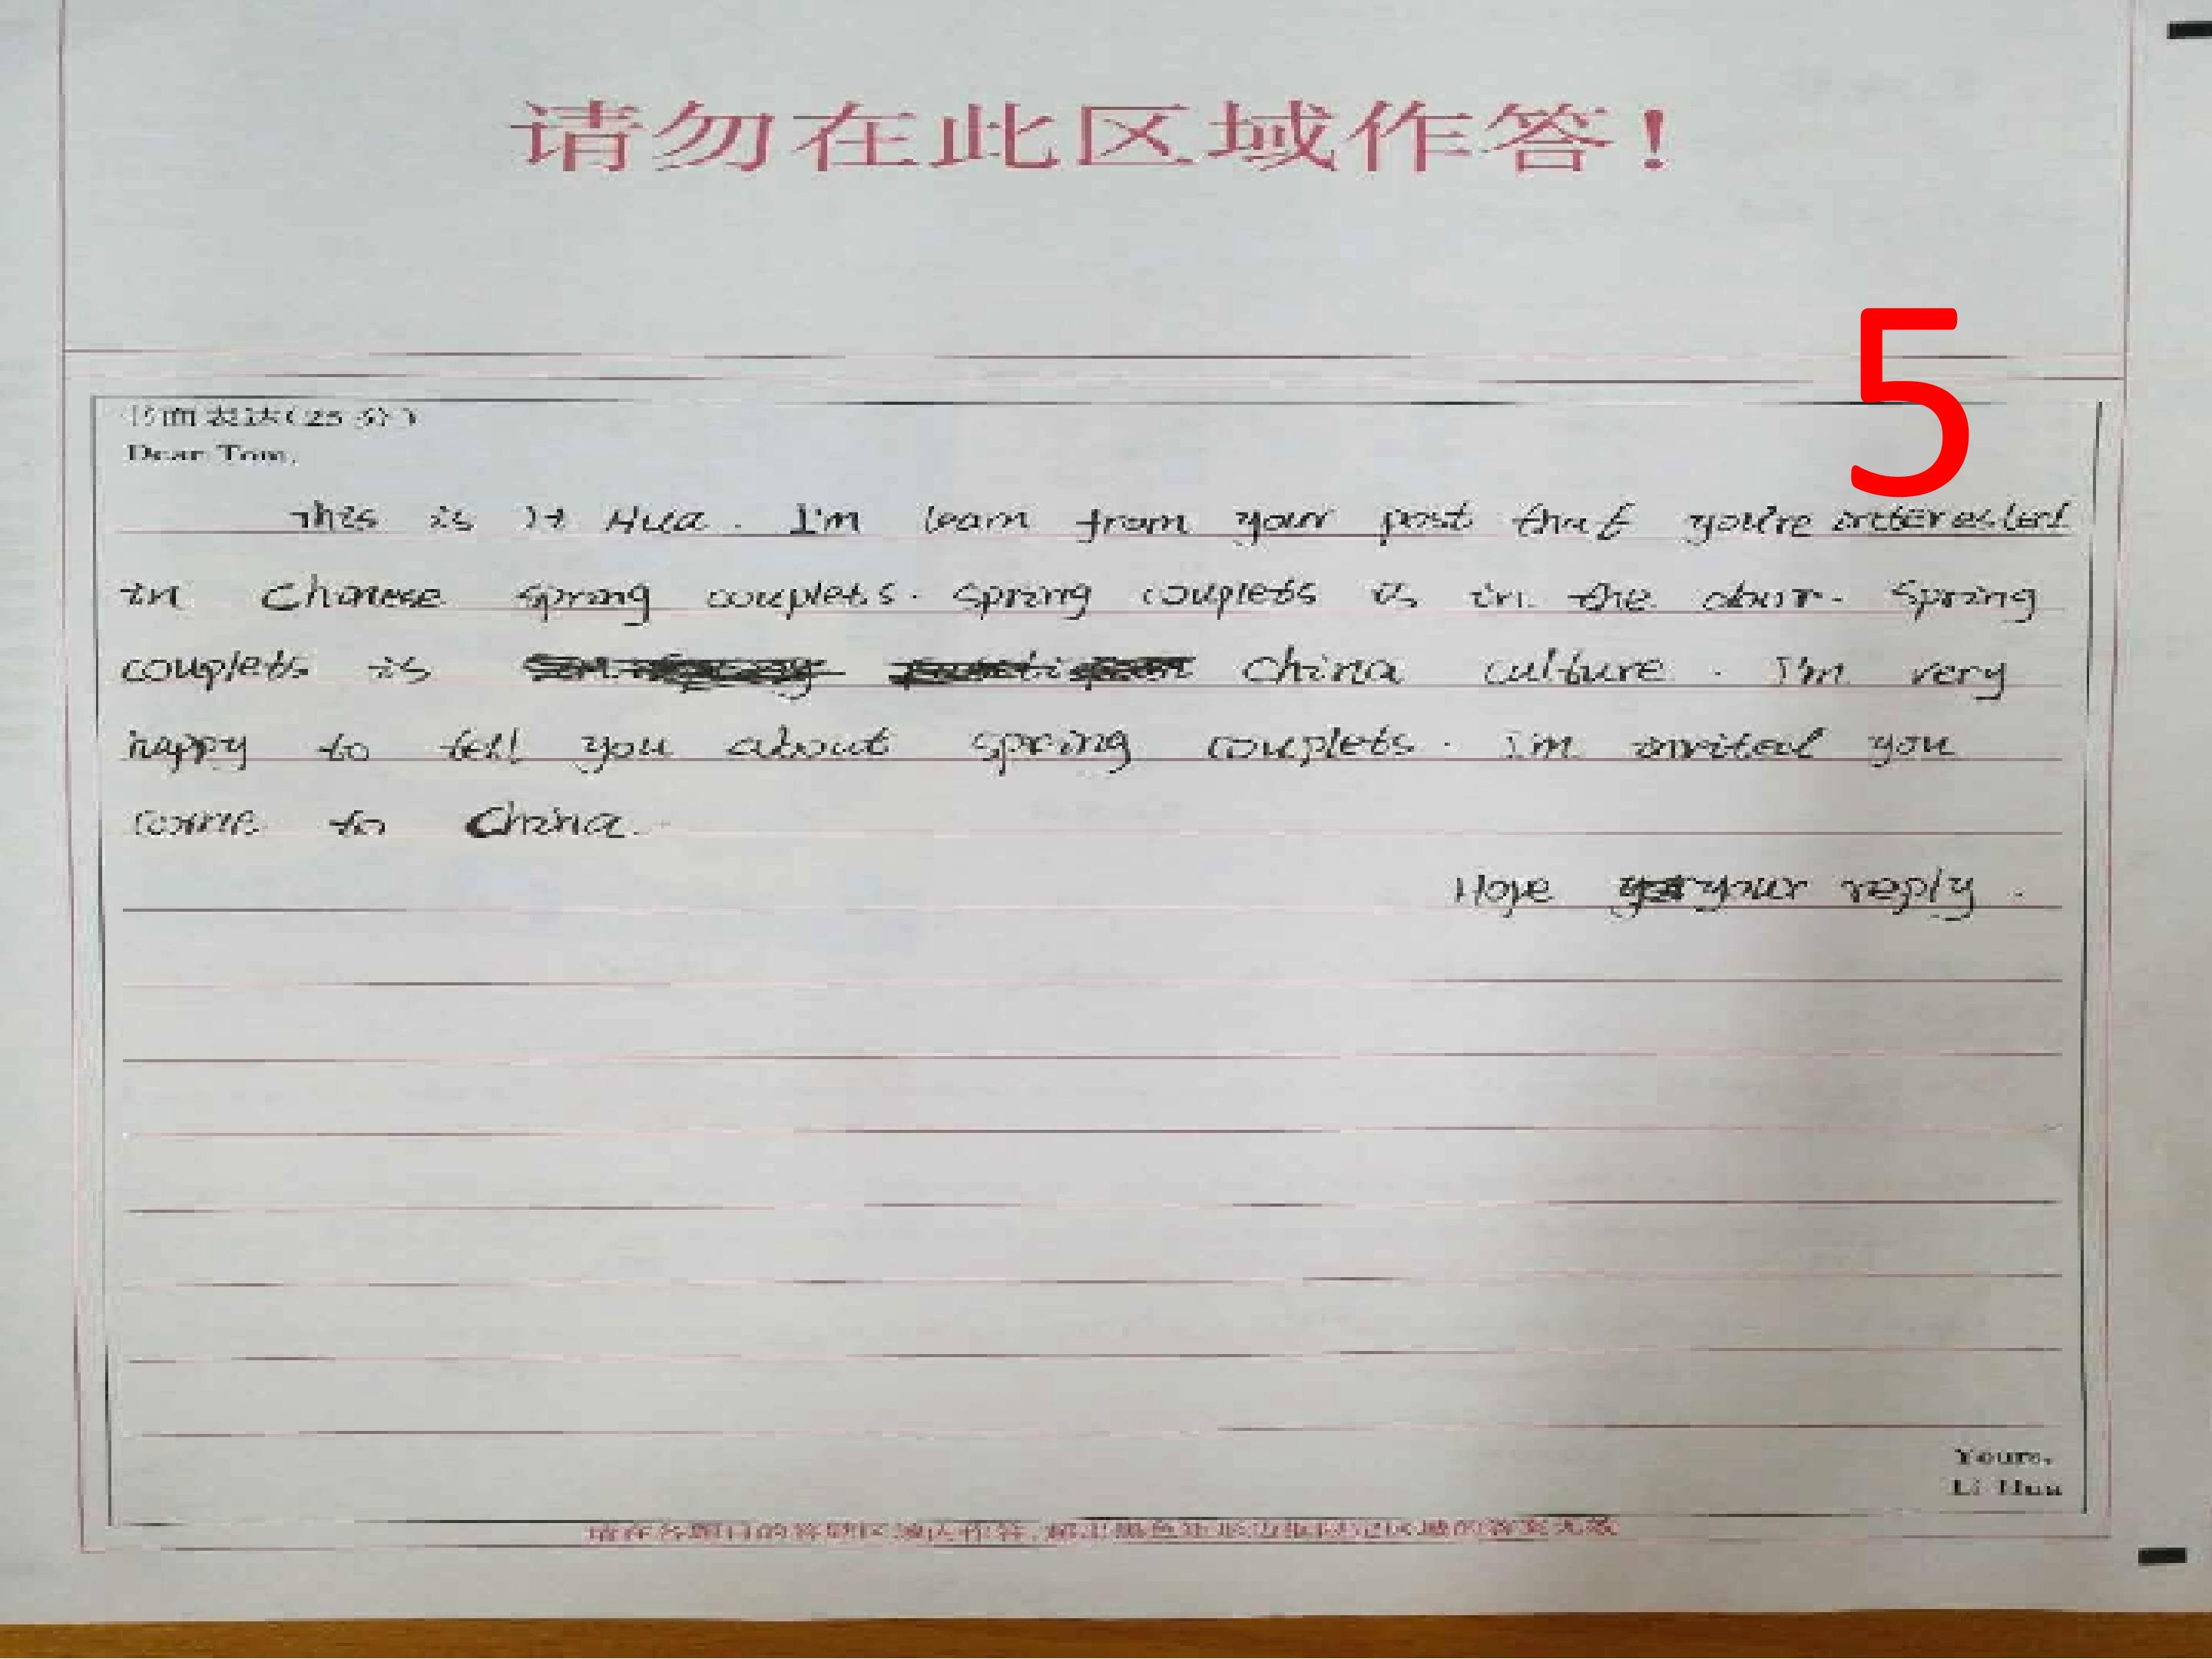 请勿在此区域作答!
5
书面表达(25分)
Dear Tom,
This is Li Hua. I'm learn from your post that you're interested
in Chinese spring couplets. Spring couplets is in the door. Spring
couplets is China culture. I'm very
happy to tell you about spring couplets. I'm invited you
come to China.
Hope your reply.
Yours,
Li Hua
请在各题目的答题区域内作答,超出黑色矩形边框限定区域的答案无效